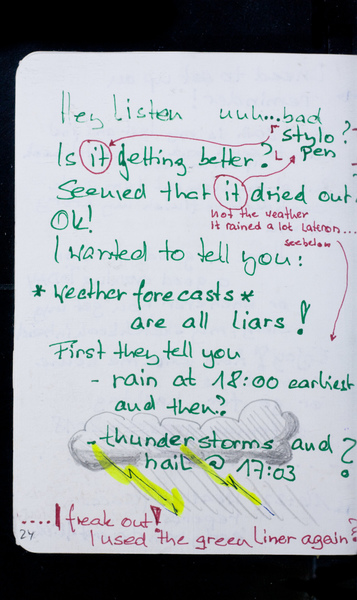 Hey Listen uuh...bad
stylo?
Pen
Is it getting better?
Seemed that it dried out?
not the weather
It rained a lot lateron....
see below
Ok!
I wanted to tell you:
* weather forecasts *
are all liars!
First they tell you
- rain at 18:00 earliest
and then?
- thunderstorms and
hail @ 17:03?
....I freak out!
I used the green Liner again?
24